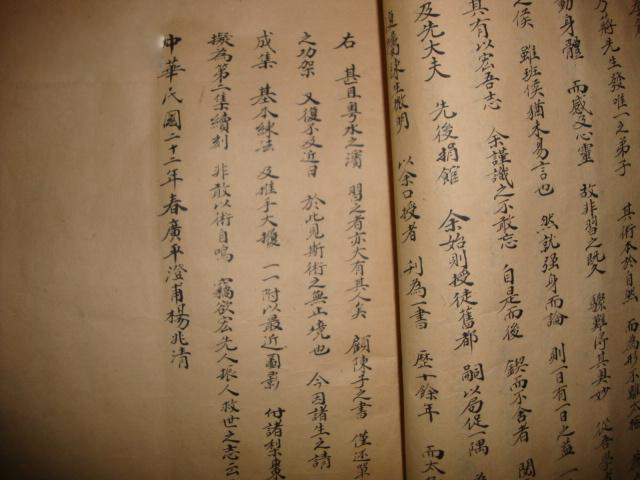 乃蔣先生發唯一之弟子　其術本於自然　而為形不離
動身體　而感及心靈　故非習之既久　驟難得其奧妙　從舍學
之侯　雖班侯猶未易言也　然就強身而論　則一日有一日之益　一
具有以宏吾志　余謹識之不敢忘　自是而後　鍥而不舍者　閱
及先大夫　先後捐館　余始則授徒舊都　嗣以局促一隅
鳴陳生微明　以余口授者　刊為一書　歷十餘年　而太
右　甚且粵水之濱　習之者亦大有其人矣　顧陳子之書　僅述單
之功架　又復不及近日　於此見斯術之無止境也　今因諸生之請
成集　基本練法　及推手大擴　一一附以最近圖影　付諸梨棗
擬為第二集續刻　非敢以術自鳴　竊欲宏先人振人救世之志云
中華民國二十二年春廣平澄甫楊兆清